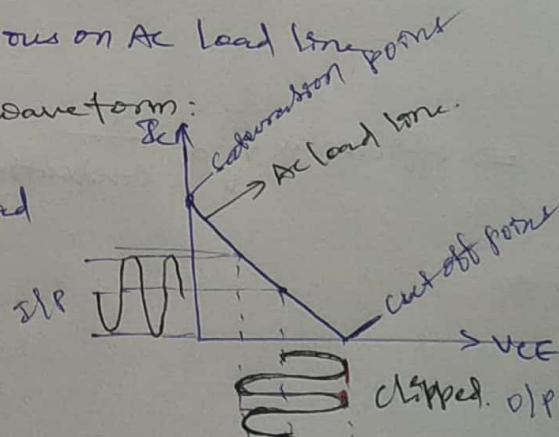 ous on Ac Load line
waveform:
saturation point
Ic
Ac load line.
ed
I/P
cut off point
VCE
clipped. O/P